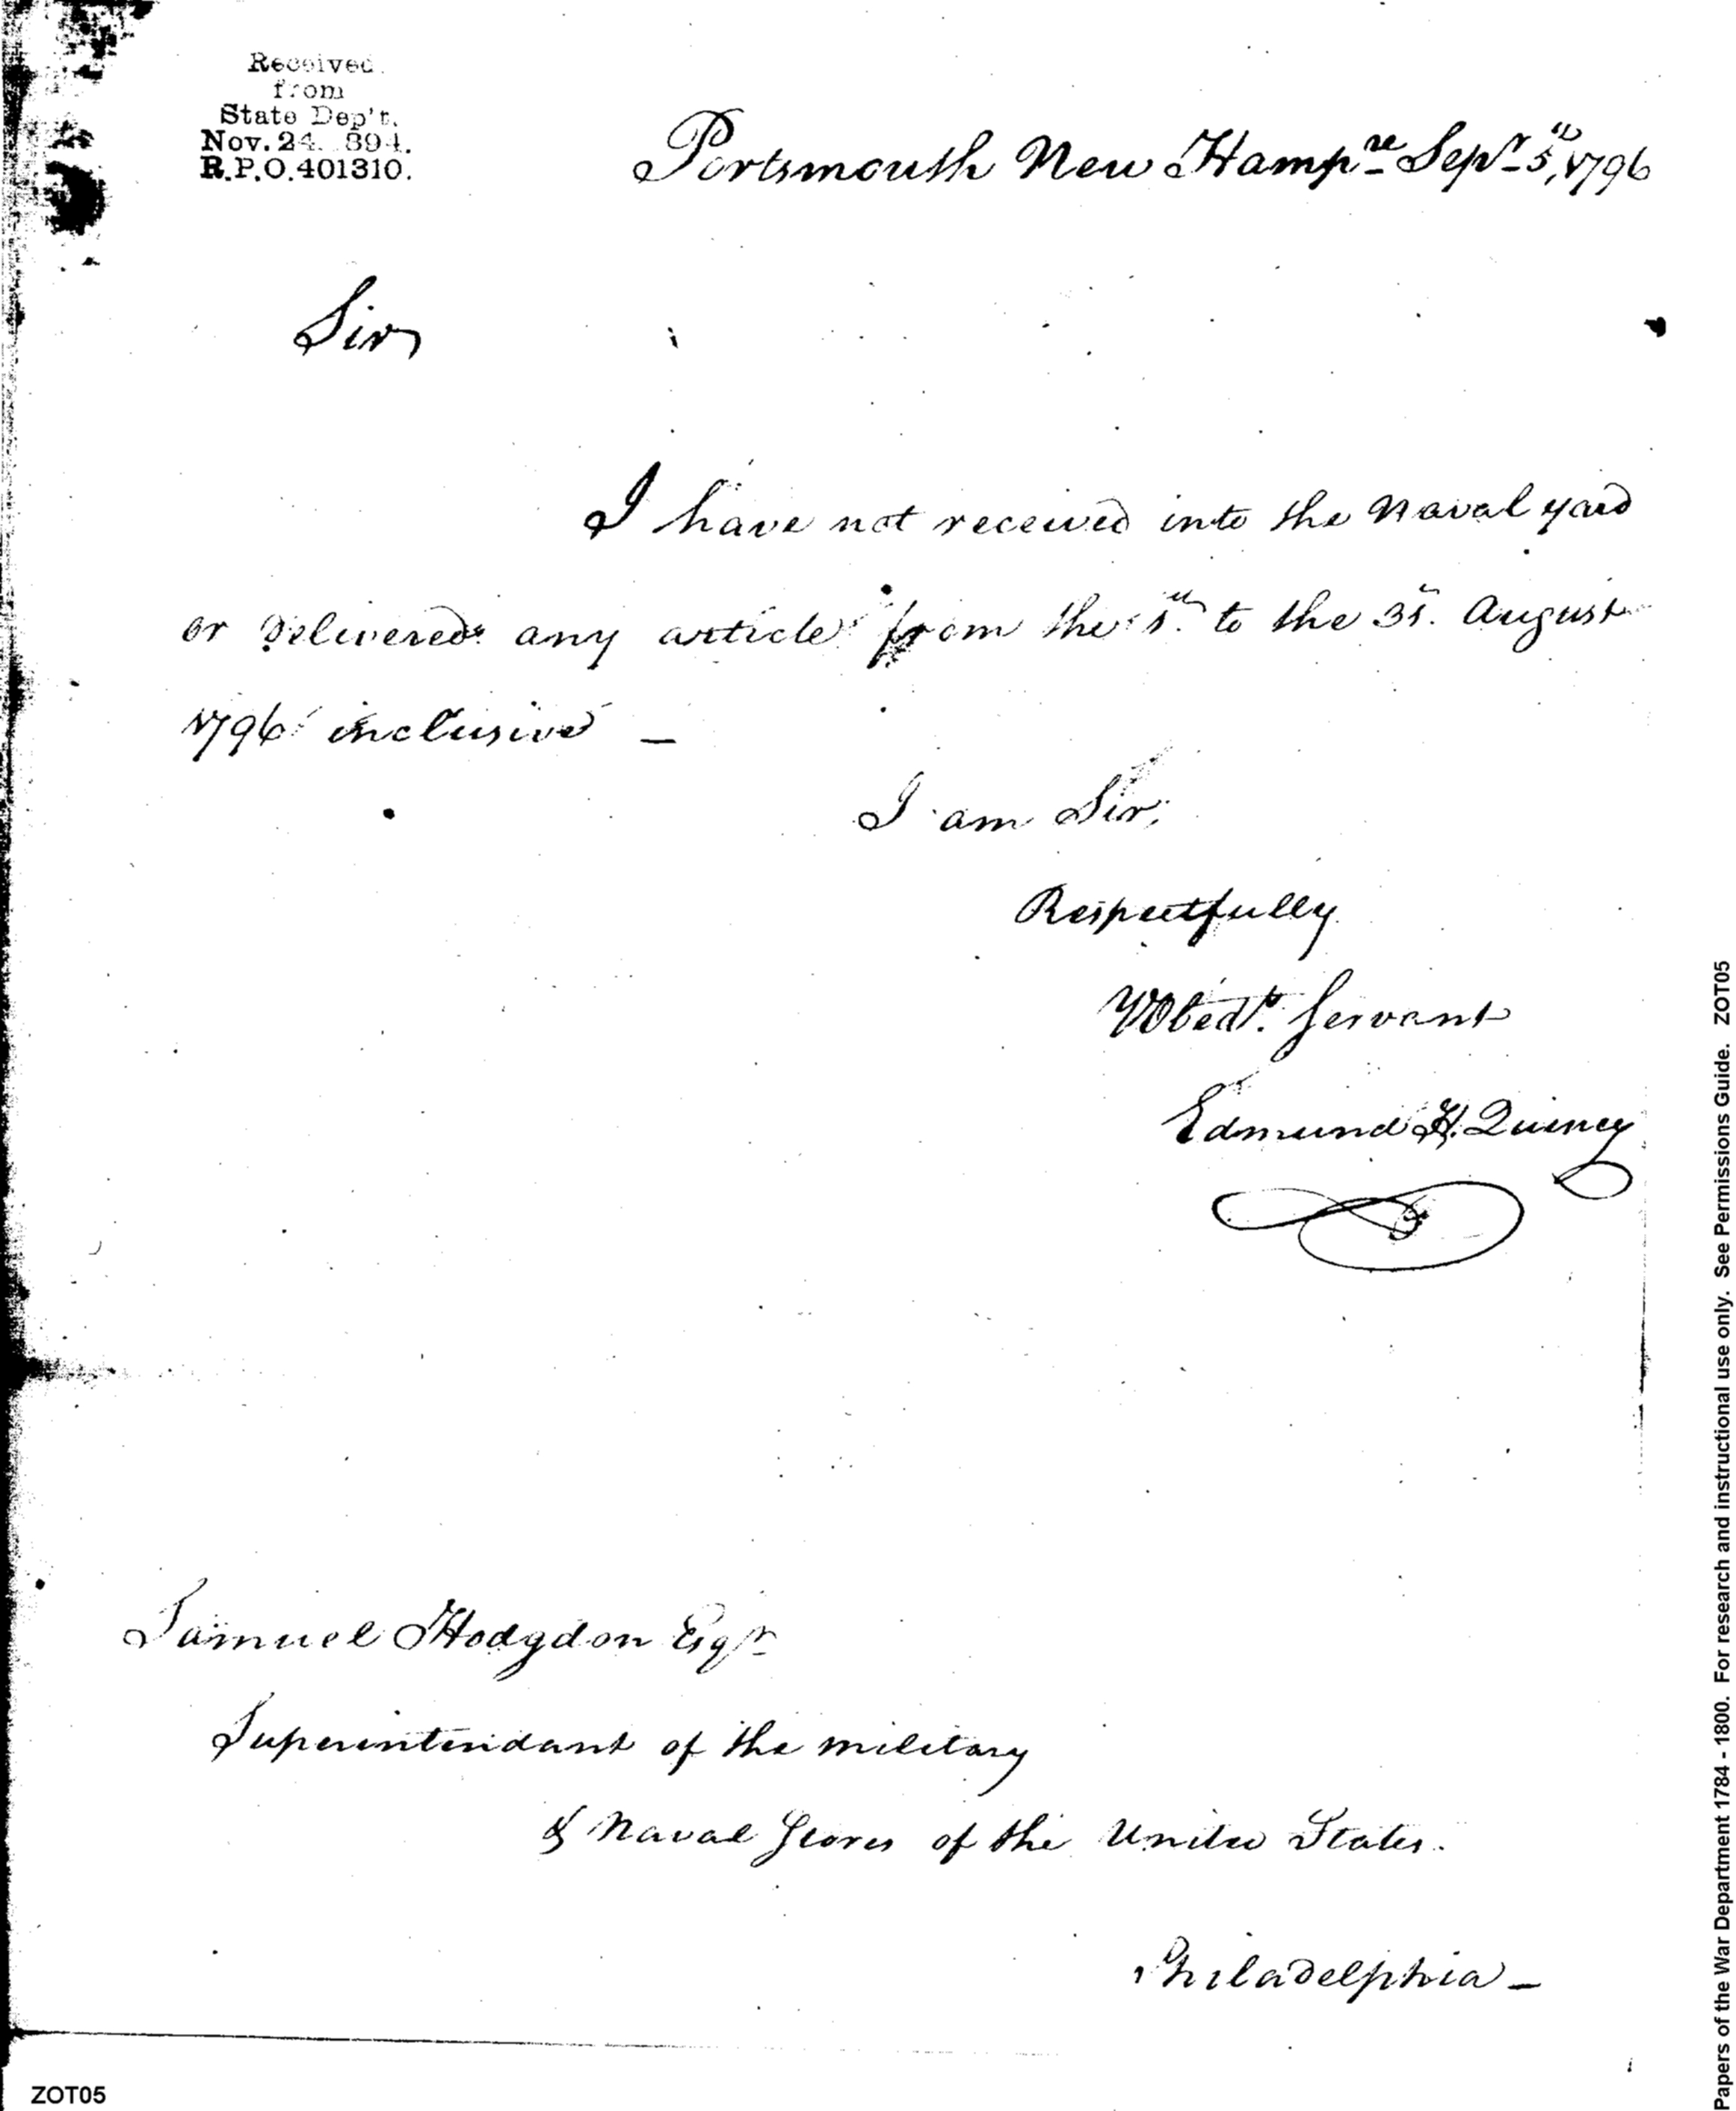 Received
from
State Dep't.
Nov. 24. 894.
R.P.O. 401310.
Portsmouth New Hampre Sepr 5th, 1796
Sir,
I have not received into the Naval yard
or Delivered any article from the 1th to the 31. August
1796 inclusive —
I am Sir,
Respectfully
YObedt. Servant
Edmund H. Quincy
Samuel Hodgdon Esqr
Superintendant of the military
& Naval Stores of the United States.
Philadelphia —
ZOT05
Papers of the War Department 1784 - 1800. For research and instructional use only. See Permissions Guide. ZOT05